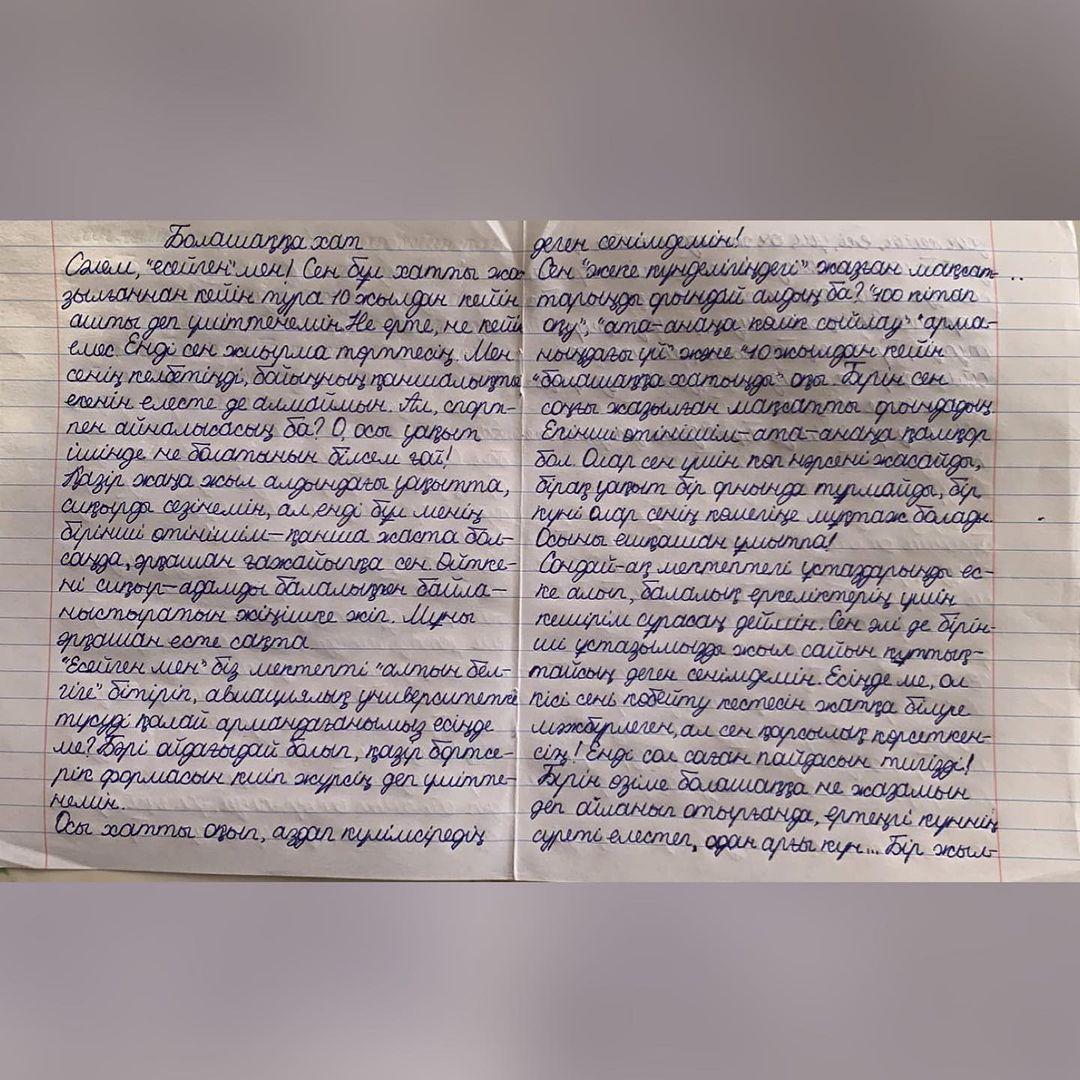 Болашаққа хат
Сәлем, "есейген" мен! Сен бұл хатты жа-
зылғаннан кейін тура 10 жылдан кейін
ашты деп үміттенемін. Не ерте, не кейін
емес. Енді сен жиырма төрттесің. Мен
сенің келбетіңді, бойыңның қаншалықты
екенін елесте де алмаймын. Ал, спорт-
пен айналысасың ба? О, осы уақыт
ішінде не болатынын білсем ғой!
Қазір жаңа жыл алдындағы уақытта,
сиқырды сезінемін, ал енді бұл менің
бірінші өтінішім-қанша жаста бол-
саңда, әрқашан ғажайыпқа сен. Өйтке-
ні сиқыр-адамды балалықпен байла-
ныстыратын жіңішке жіп. Мұны
әрқашан есте сақта.
"Есейген мен" біз мектепті "алтын бел-
гіге" бітіріп, авиациялық университетке
түсуді қалай армандағанымыз есіңде
ме? Бәрі айдағыдай болып, қазір бортсе-
рік формасын киіп жүрсің деп үмітте-
немін.
Осы хатты оқып, аздап күлімсіредің
деген сенімдемін!
Сен "жеке күнделігіңдегі" жазған мақсат-
тарыңды орындай алдың ба? "100 кітап
оқу", "ата-анаңа көлік сыйлау" "арма-
ныңдағы үй" және "10 жылдан кейін
"болашаққа хатыңды" оқы. Бірін сен
соңғы жазылған мақсатты орындадың.
Екінші өтінішім-ата-анаңа қамқор
бол. Олар сен үшін көп нәрсені жасайды,
бірақ уақыт бір орнында тұрмайды, бір
күні олар сенің көмегіңе мұқтаж болады.
Осыны ешқашан ұмытпа!
Сондай-ақ мектептегі ұстаздарыңды ес-
ке алып, балалық еркеліктерің үшін
кешірім сұрасаң деймін. Сен әлі де бірін-
ші ұстазымызды жыл сайын құттық-
тайсың деген сенімдемін. Есіңде ме, ол
кісі сені көбейту кестесін жатқа білуге
мәжбүрлеген, ал сен қарсылық көрсеткен-
сің! Енді сол саған пайдасын тигізді!
Бірін өзіме болашаққа не жазамын
деп ойланып отырғанда, ертеңгі күннің
суреті елестеп, одан арғы күн... Бір жыл-